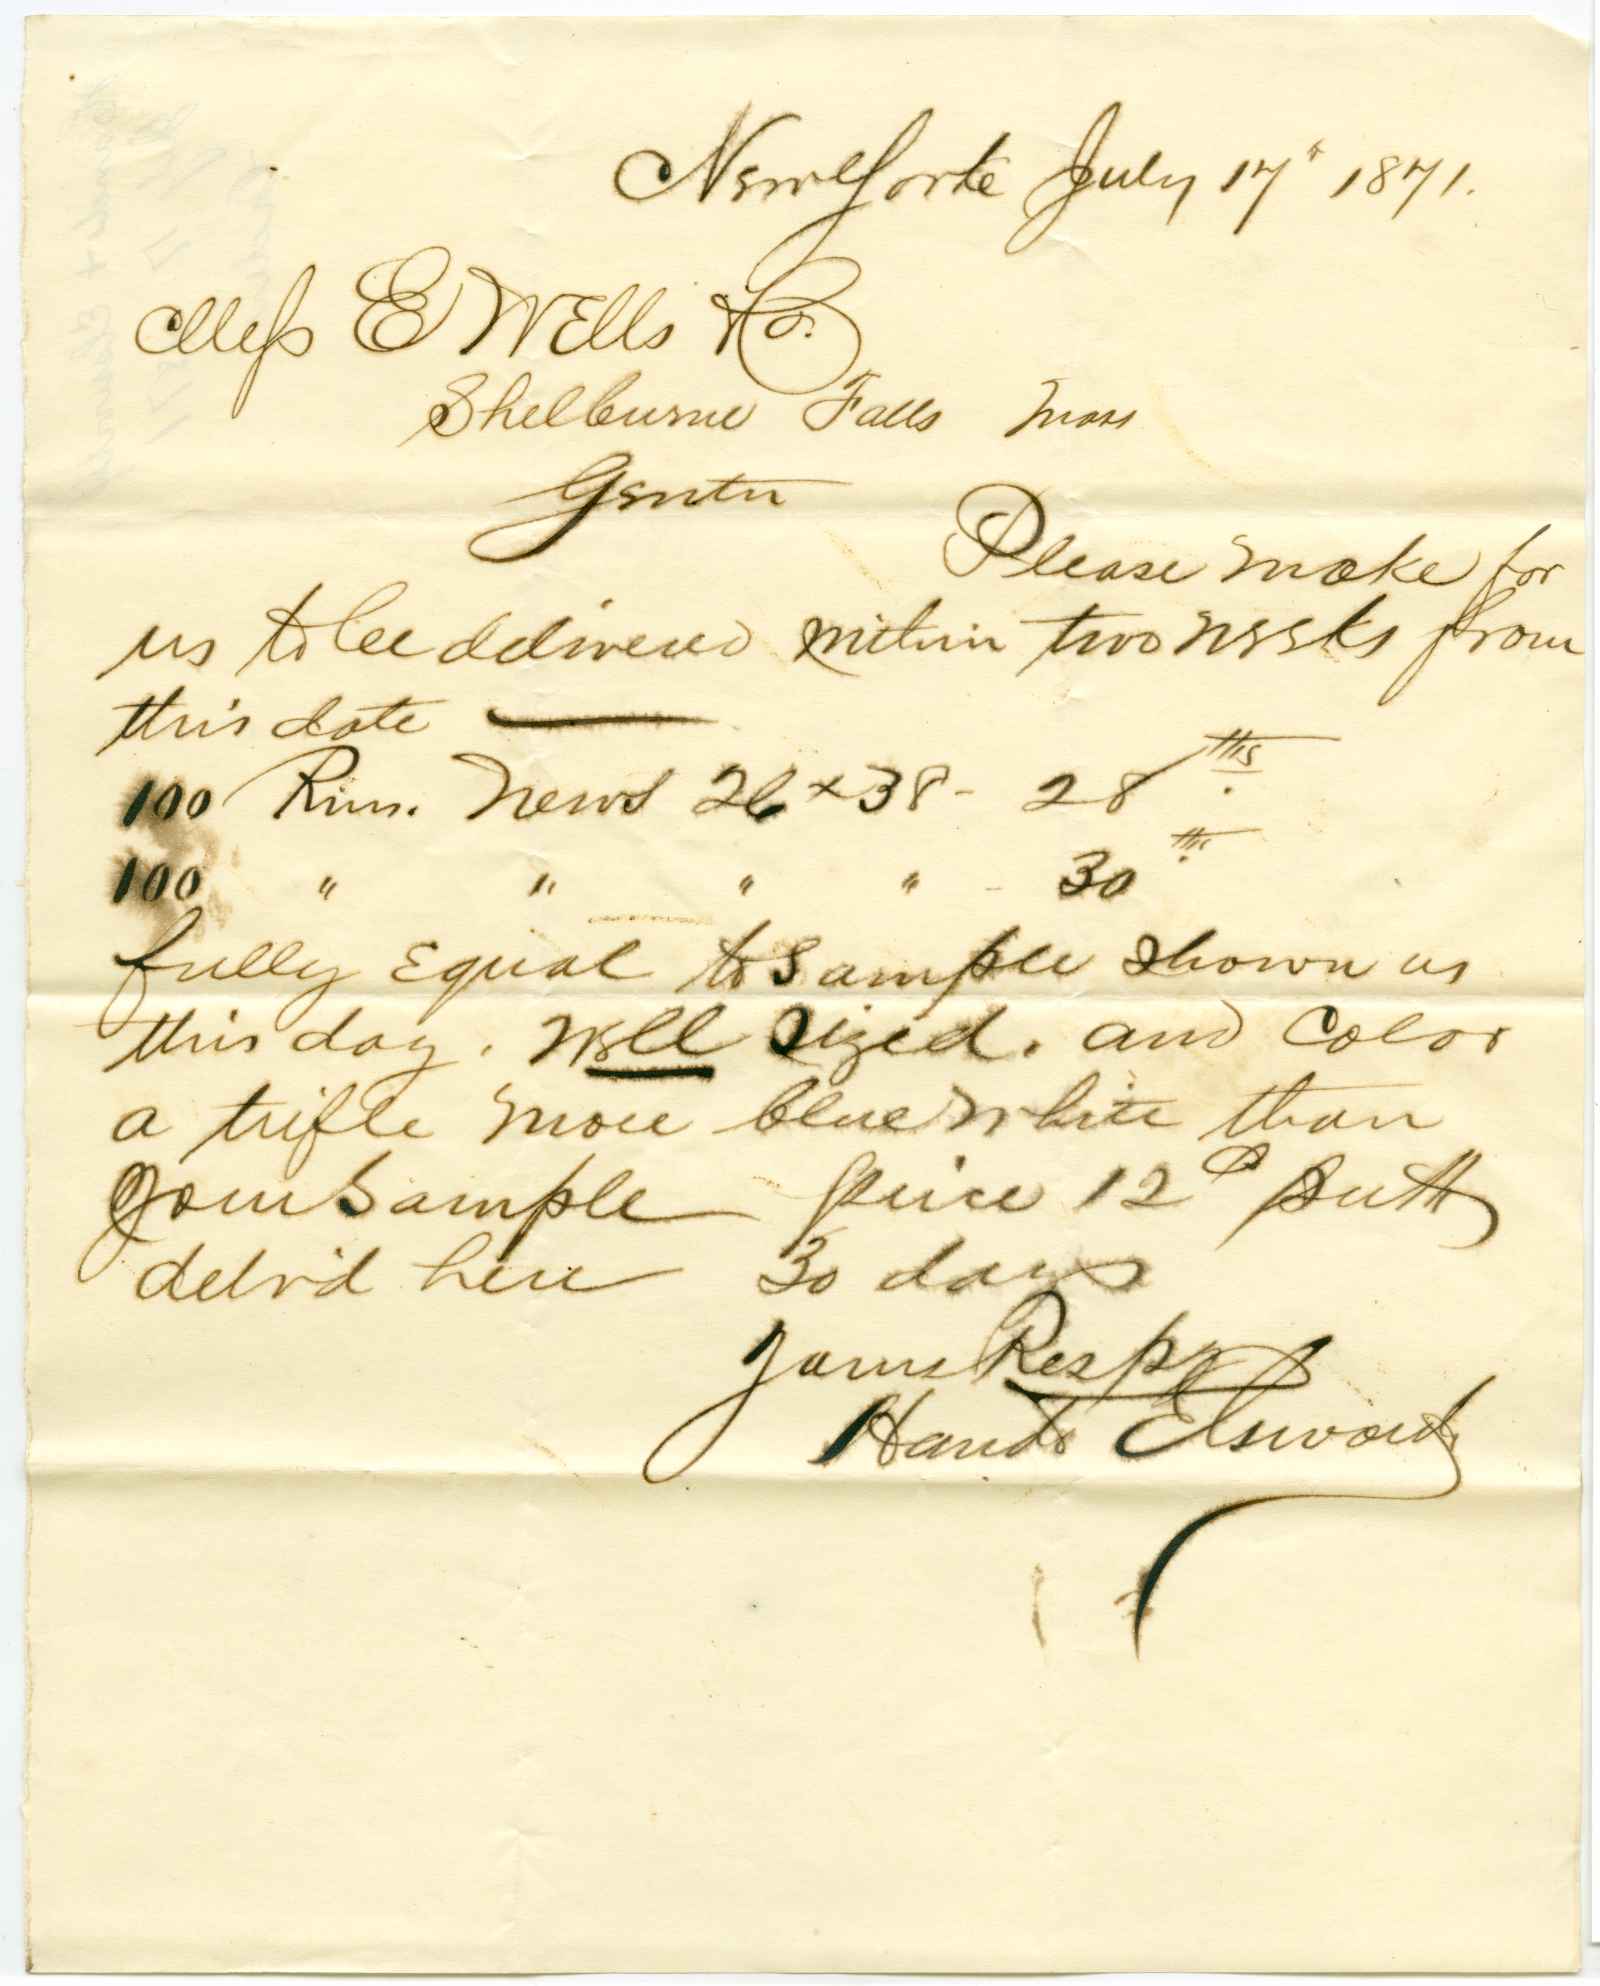 New York July 17th 1871.
Mess E Wells & Co.
Shelburne Falls Mass
Gentn
Please make for
us to be delivered within two weeks from
this date —
100 Rms. News 26 x 38 - 28 lbs
100 " " " " - 30 lbs
fully equal to sample shown us
this day. Well sized. and color
a trifle more blue white than
your sample price 12¢
delv'd here 30 days
Yours Resp
Hand & Elsward